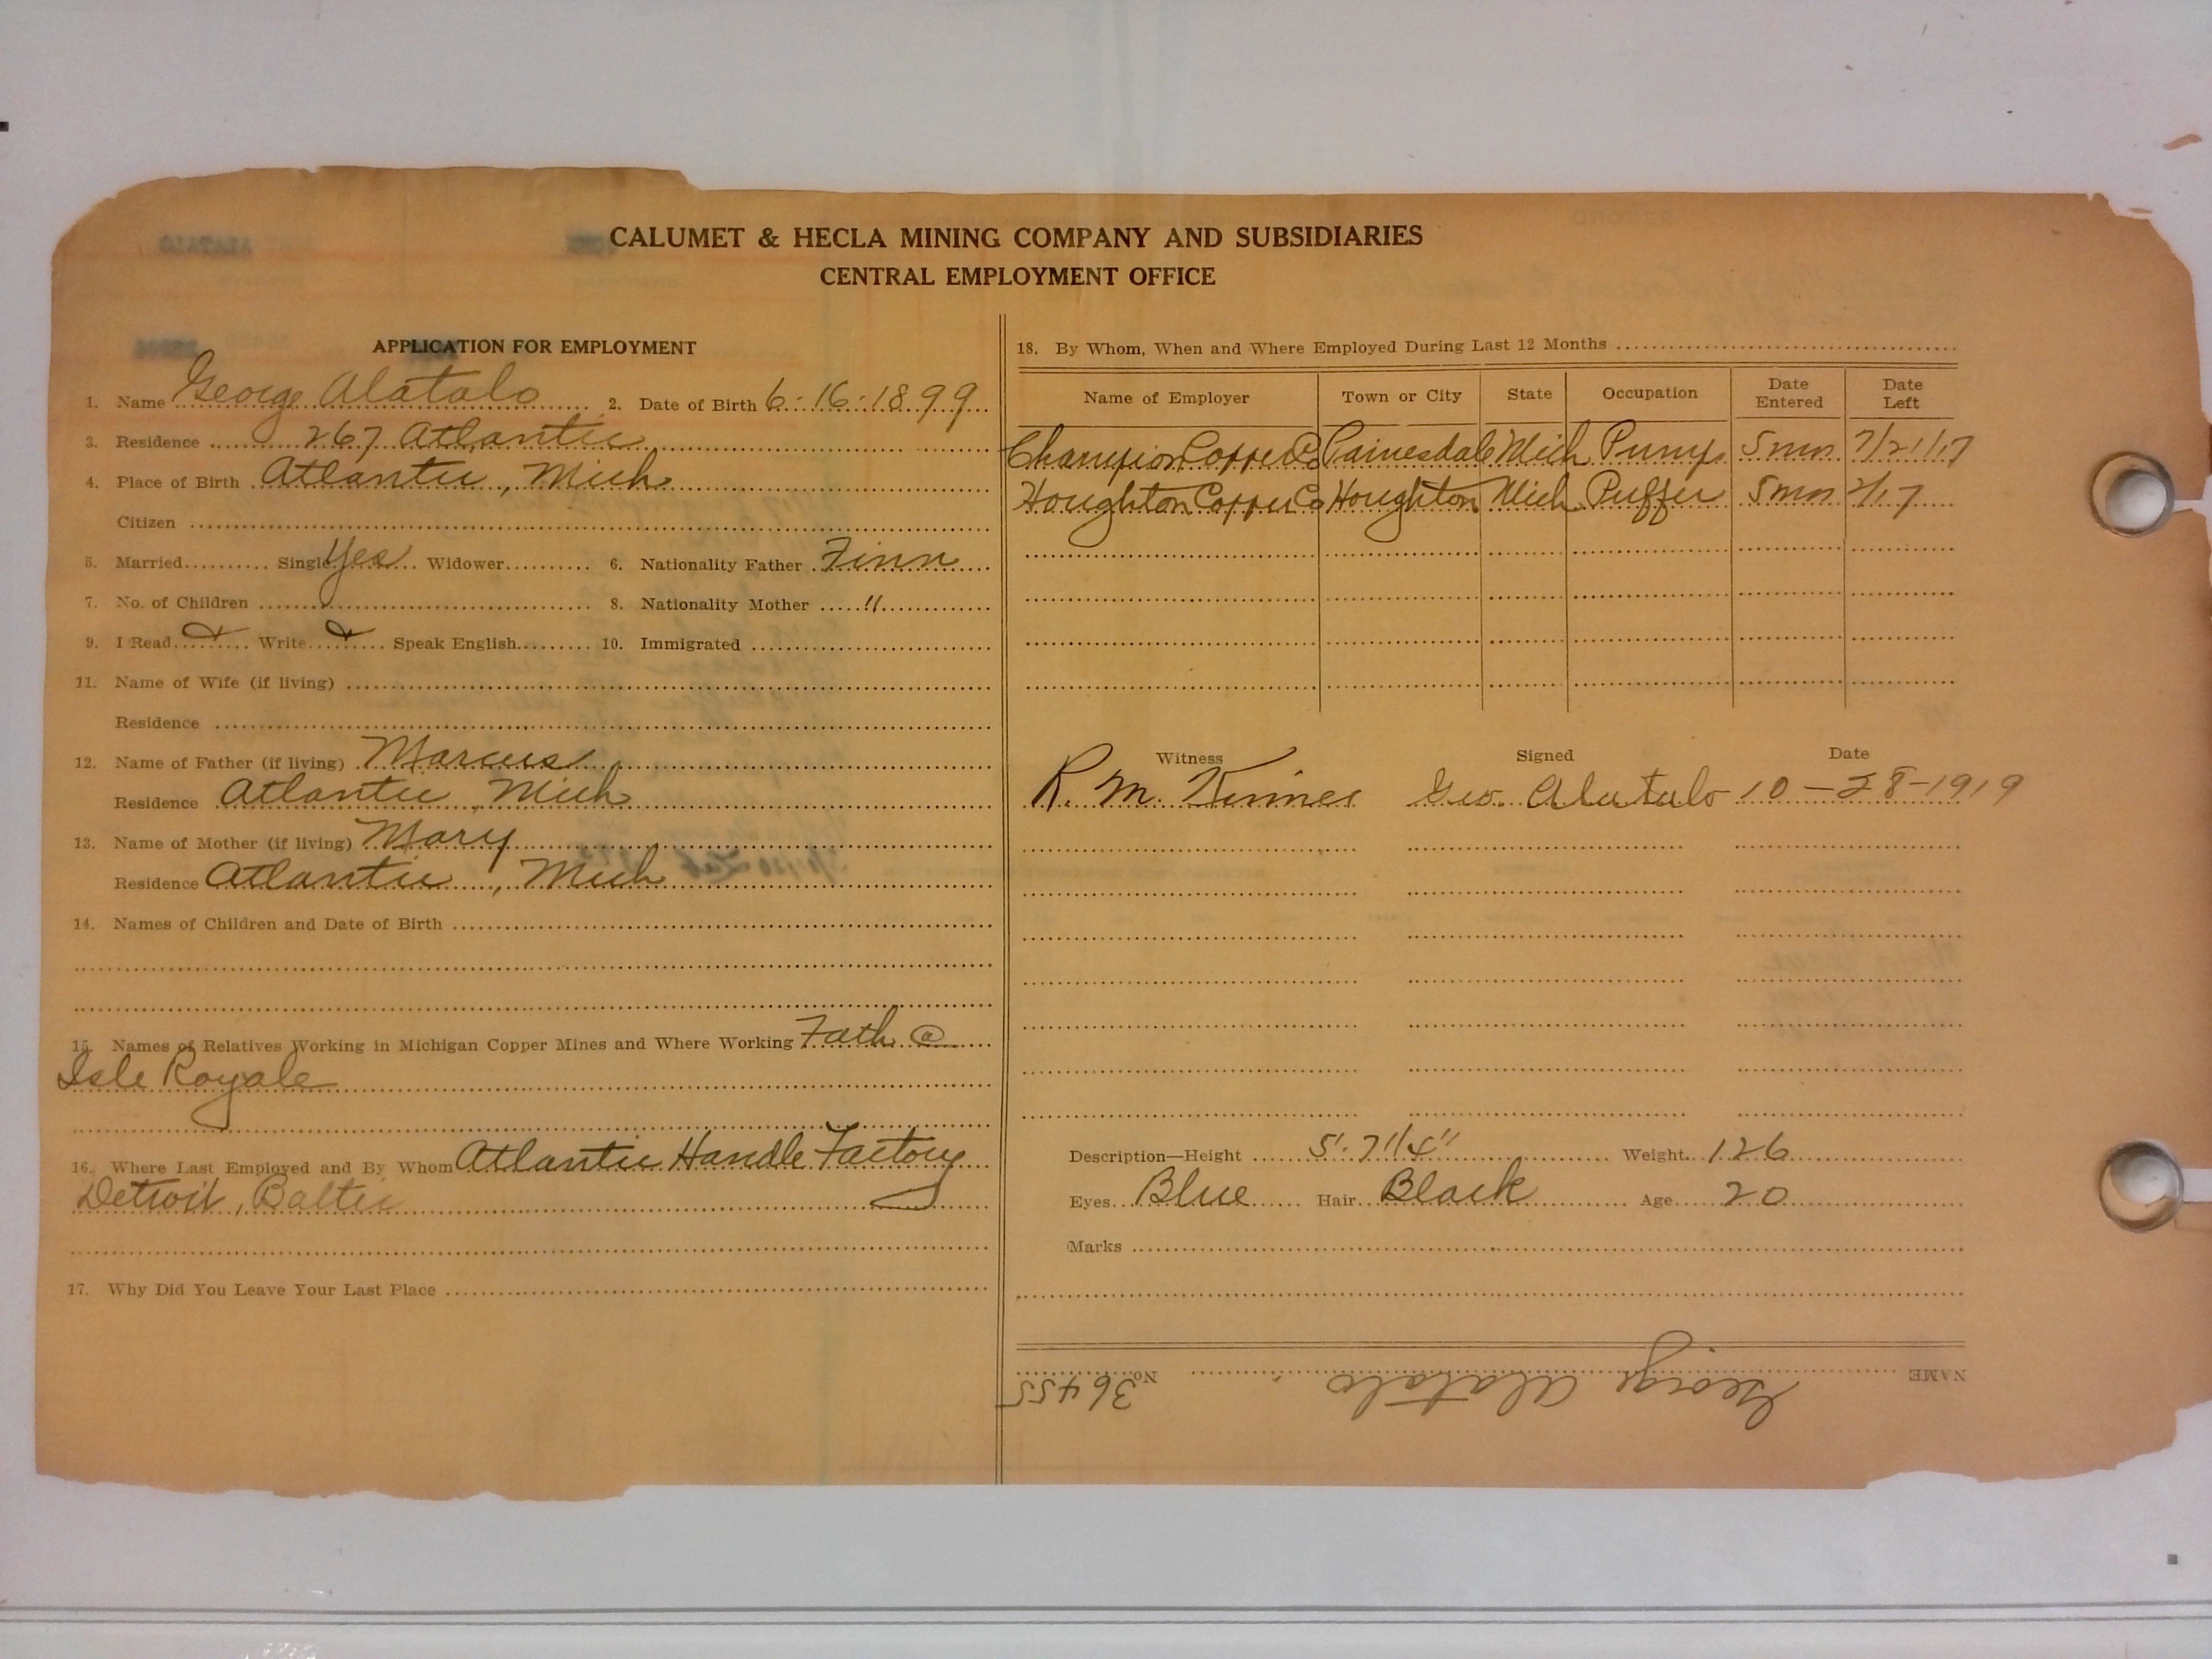 CALUMET & HECLA MINING COMPANY AND SUBSIDIARIES
CENTRAL EMPLOYMENT OFFICE
APPLICATION FOR EMPLOYMENT
1. Name George Alatalo 2. Date of Birth 6-16-1899
3. Residence 267 Atlantic
4. Place of Birth Atlantic, Mich
Citizen
5. Married Single Yes Widower 6. Nationality Father Finn
7. No. of Children 8. Nationality Mother "
9. I Read Write Speak English 10. Immigrated
11. Name of Wife (if living)
Residence
12. Name of Father (if living) Marcus
Residence Atlantic, Mich
13. Name of Mother (if living) Mary
Residence Atlantic, Mich
14. Names of Children and Date of Birth
15. Names of Relatives Working in Michigan Copper Mines and Where Working Fath @
Isle Royale
16. Where Last Employed and By Whom Atlantic Handle Factory
Detroit, Baltic
17. Why Did You Leave Your Last Place
18. By Whom, When and Where Employed During Last 12 Months
Name of Employer Town or City State Occupation Date Entered Date Left
Champion Copper Co Painesdale Mich Pump 5 mon 7/21/17
Houghton Copper Co Houghton Mich Puffer 5 mon 2/17
Witness Signed Date
R. M. Geo. Alatalo 10-28-1919
Description—Height 5'. 7 1/4" Weight 126
Eyes Blue Hair Black Age 20
Marks
NAME George Alatalo No. 36455